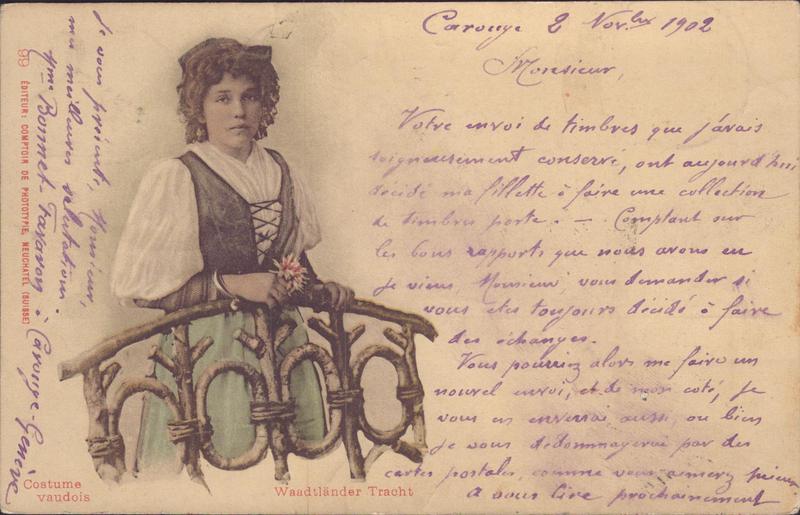 Carouge 2 Nov.bre 1902
Monsieur,
Votre envoi de timbres que j'avais
soigneusement conservé, ont aujourd'hui
décidé ma fillette à faire une collection
de timbres poste. — Comptant sur
les bons rapports que nous avons eu
je viens, Monsieur, vous demander si
vous etes toujours décidé à faire
des échanges.
Vous pourriez alors me faire un
nouvel envoi, et de mon coté, je
vous en enverrai aussi, ou bien
je vous dédommagerai par des
cartes postales, comme vous aimerez mieux
A vous lire prochainement
Je vous présent, Monsieur,
mes meilleures salutations.
Mme Bonnet-Favavon à Carouge-Genève
99 ÉDITEUR: COMPTOIR DE PHOTOTYPIE, NEUCHATEL (SUISSE)
Costume
vaudois
Waadtländer Tracht